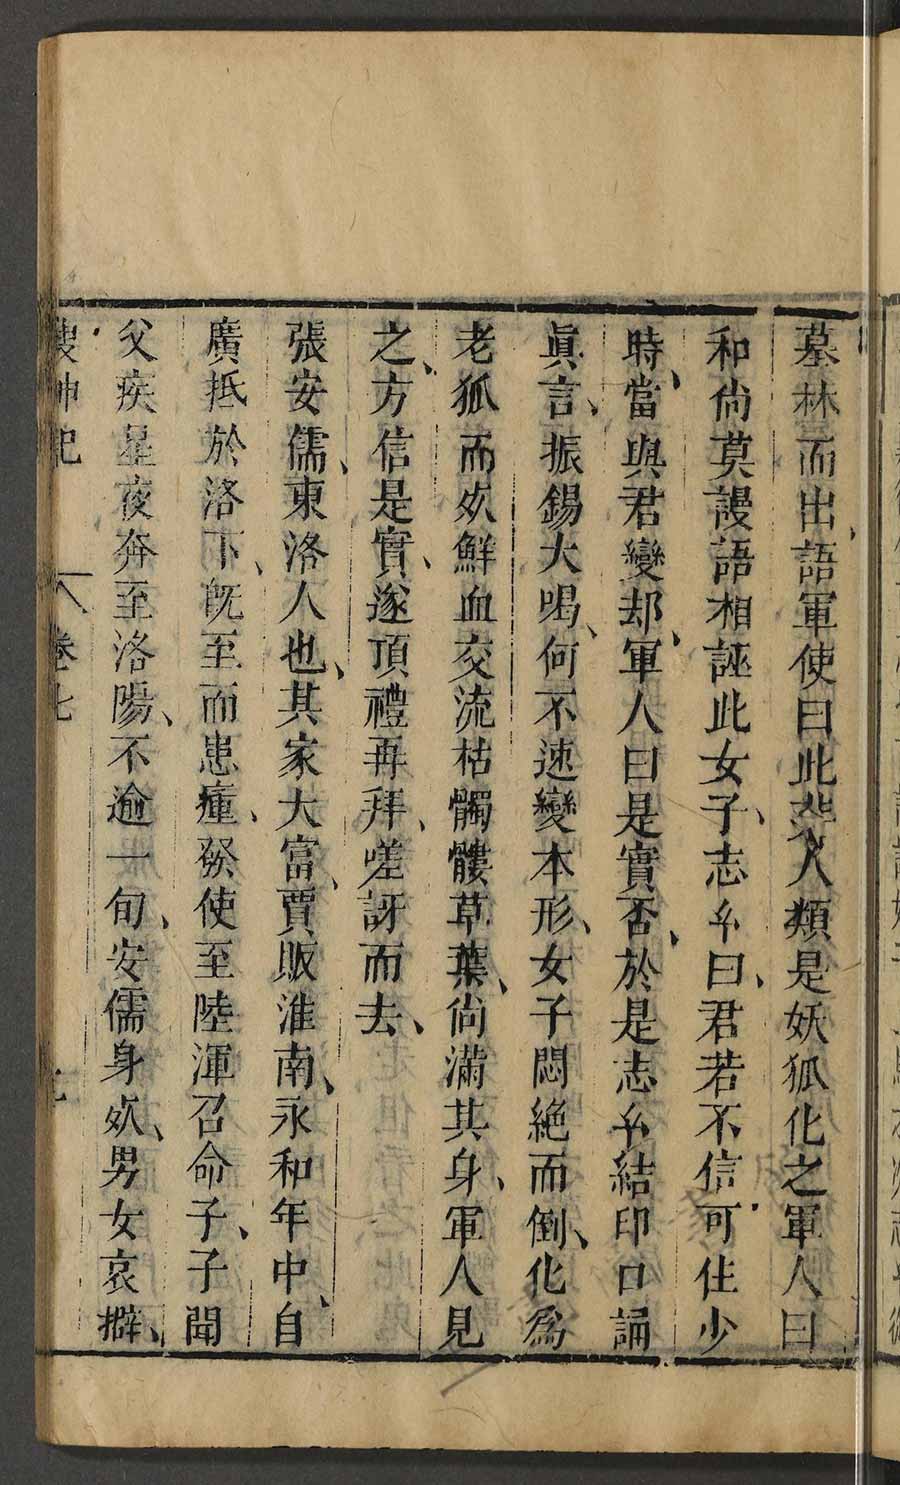 墓林而出語軍使曰此非人類是妖狐化之軍人曰
和尚莫謾語相誣此女子志幺曰君若不信可住少
時當與君變却軍人曰是實否於是志幺結印口誦
眞言振錫大喝何不速變本形女子悶絕而倒化爲
老狐而𣦸鮮血交流枯髑髏草葉尙滿其身軍人見
之方信是實遂頂禮再拜嗟訝而去
張安儒東洛人也其家大富賈販淮南永和年中自
廣抵於洛下旣至而患瘇發使至陸渾召命子子聞
父疾星夜奔至洛陽不逾一旬安儒身𣦸男女哀擗
搜神記 卷七